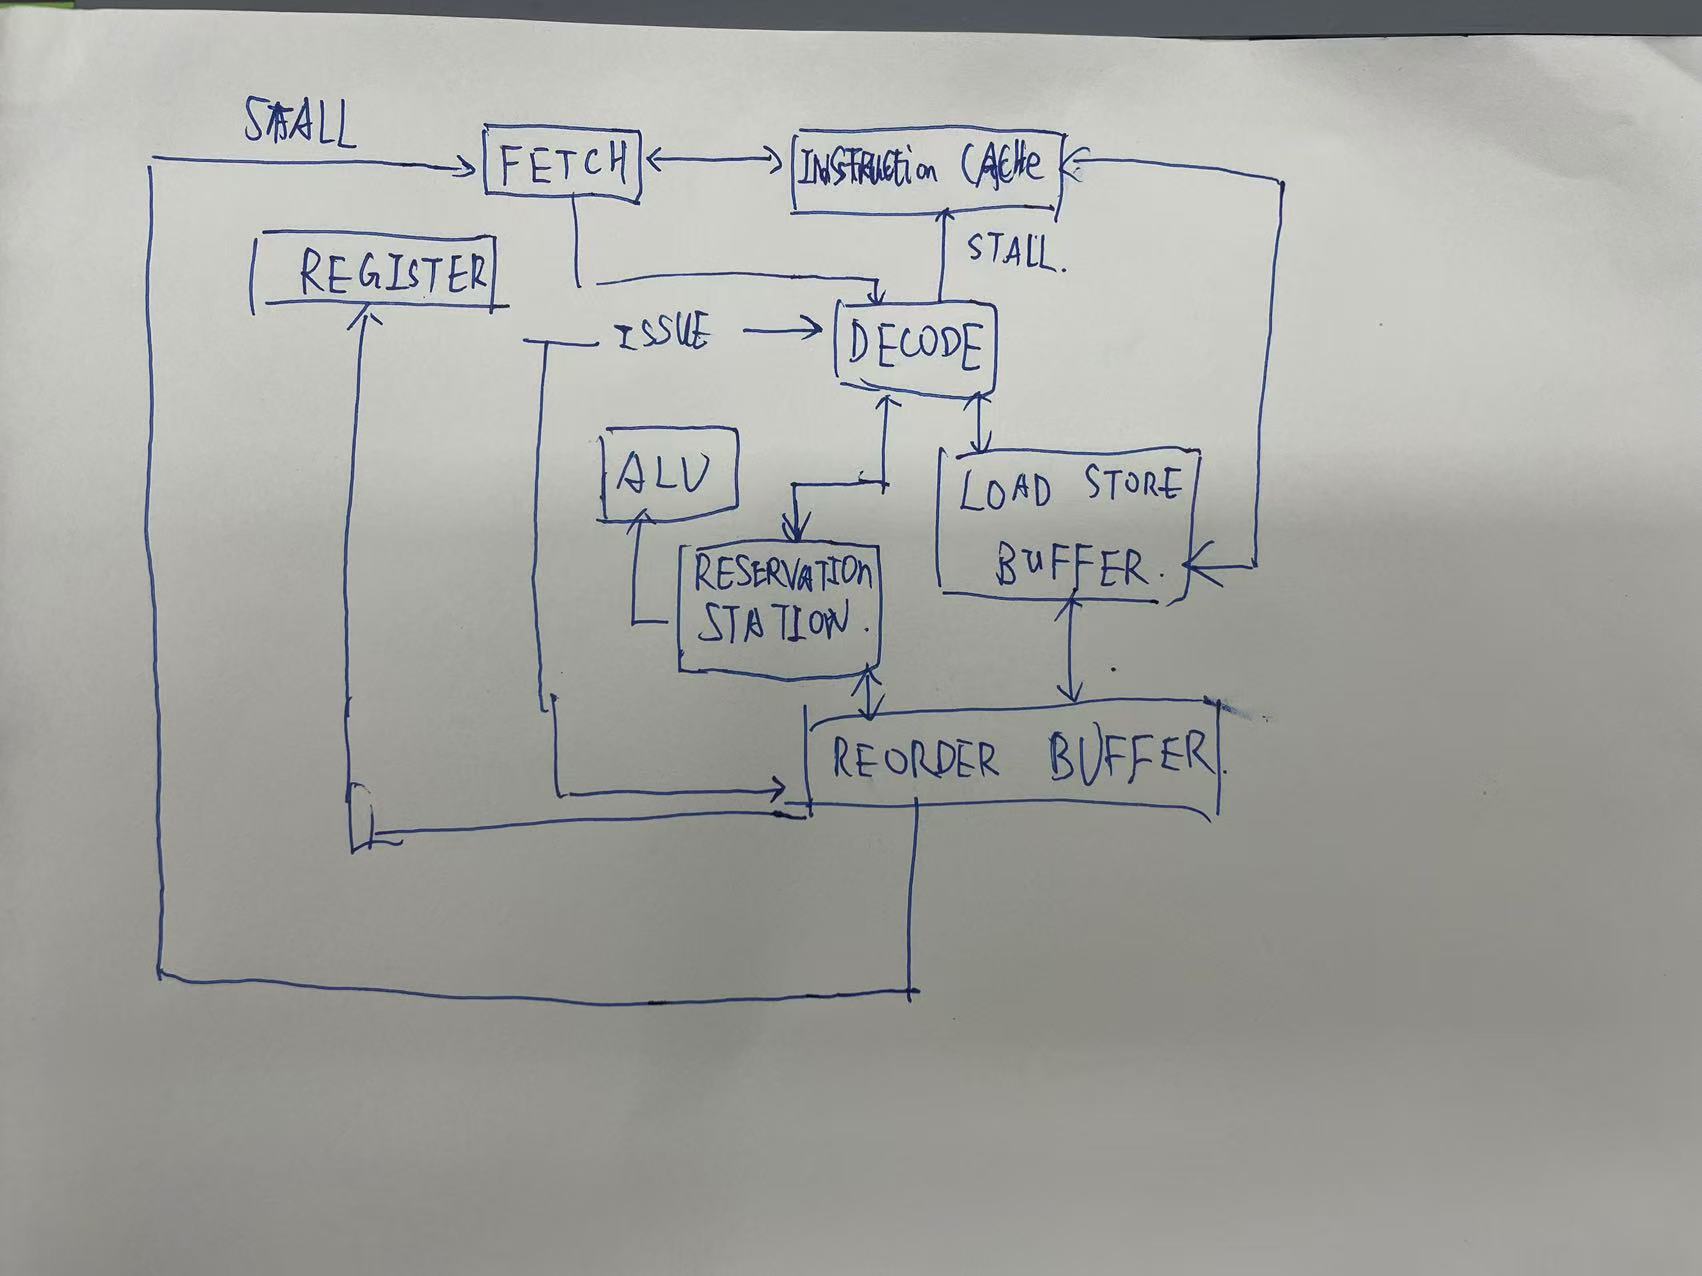 STALL
FETCH
INSTRUCTion CACHe
REGISTER
STALL.
ISSUE
DECODE
ALU
LOAD STORE
BUFFER.
RESERVATIOn
STATION.
REORDER BUFFER.